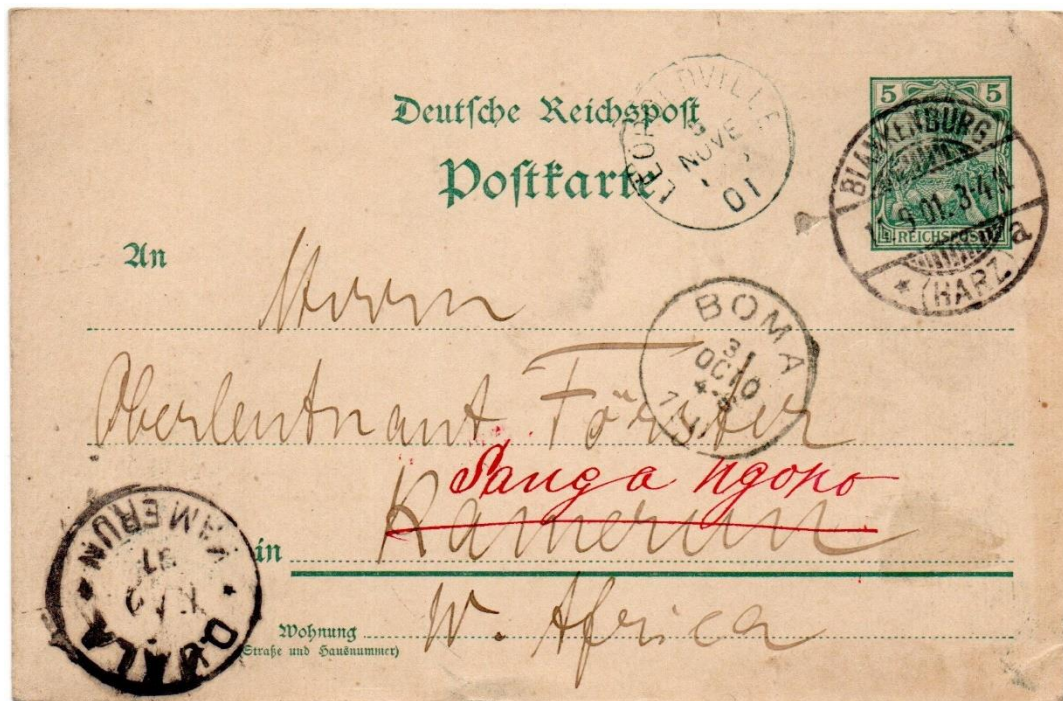 Deutsche Reichspost
Postkarte
LEOPOLDVILLE
NOVE
01
5 5
REICHSPOST
BLANKENBURG
9 01. 3-4 N.
* (HARZ) a
An
Herrn
BOMA
31
OCTO
4-5
Oberlentnant Förster
Sanga Ngoko
in Kamerun
W. Africa
Wohnung
(Straße und Hausnummer)
KAMERUN
* *
DUALA